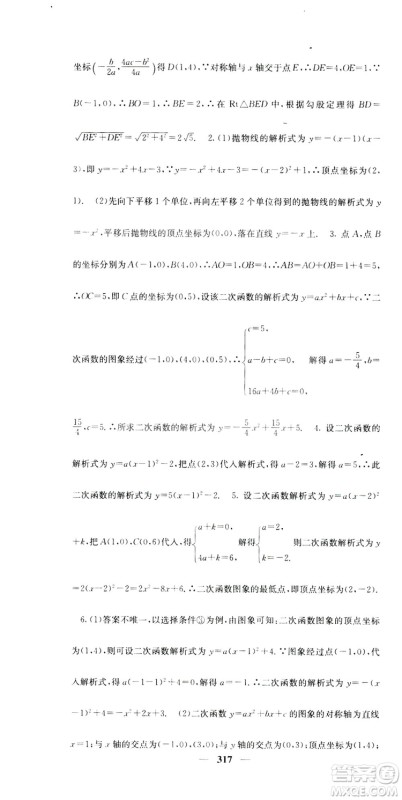 坐标(-b/2a, (4ac-b²)/4a)得 D(1,4),∵对称轴与 x 轴交于点 E,∴DE=4,∵
B(-1,0),∴BO=1,∴BE=2,在 Rt△BED 中,根据勾股定理得 BD=
√(BE²+DE²)=√(2²+4²)=2√5. 2. (1)抛物线的解析式为 y=-(x-1)(x-
3),即 y=-x²+4x-3,∵y=-x²+4x-3=-(x-2)²+1,∴顶点坐标为(2,
1). (2)先向下平移 1 个单位,再向左平移 2 个单位得到的抛物线的解析式为
y=-x²,平移后抛物线的顶点坐标为(0,0),落在直线 y=-x 上. 3. 点 A,点 B
的坐标分别为A(-1,0),B(4,0),∴AO=1,OB=4,∴AB=AO+OB=1+4=5,
∴OC=5,即 C 点的坐标为(0,5),设该二次函数的解析式为 y=ax²+bx+c,∵二
次函数的图象经过(-1,0),(4,0),(0,5),∴{c=5, a-b+c=0, 16a+4b+c=0, 解得 a=-5/4,b=
15/4,c=5.∴所求二次函数的解析式为 y=-5/4x²+15/4x+5. 4. 设二次函数的
解析式为 y=a(x-1)²-2,把点(2,3)代入解析式,解得 a=5,∴二次函数的解
析式为 y=5(x-1)²-2. 5. 设二次函数解析式为 y=a(x-1)²
+k,把 A(1,0),C(0,6)代入得,{a+k=0, 4a+k=6, 解得{a=2, k=-2, 则二次函数解析式为 y
=2(x-1)²-2,∴二次函数图象的最低点,即顶点坐标为(1,-2).
6.(1)答案不唯一,以选择条件①为例. 由二次函数图象的顶点坐标
为(1,4),得二次函数的解析式为 y=a(x-1)²+4;∵图象经过点(-1,0),
代入解析式,得 a=-1,∴二次函数的解析式为
y=-(x-1)²+4. (2)由解析式得二次函数的图象的对称轴为直线
x=1;与 x 轴的交点为(-1,0),(3,0);顶点坐标为(1,4);与 y 轴的交点为(0,3);
317